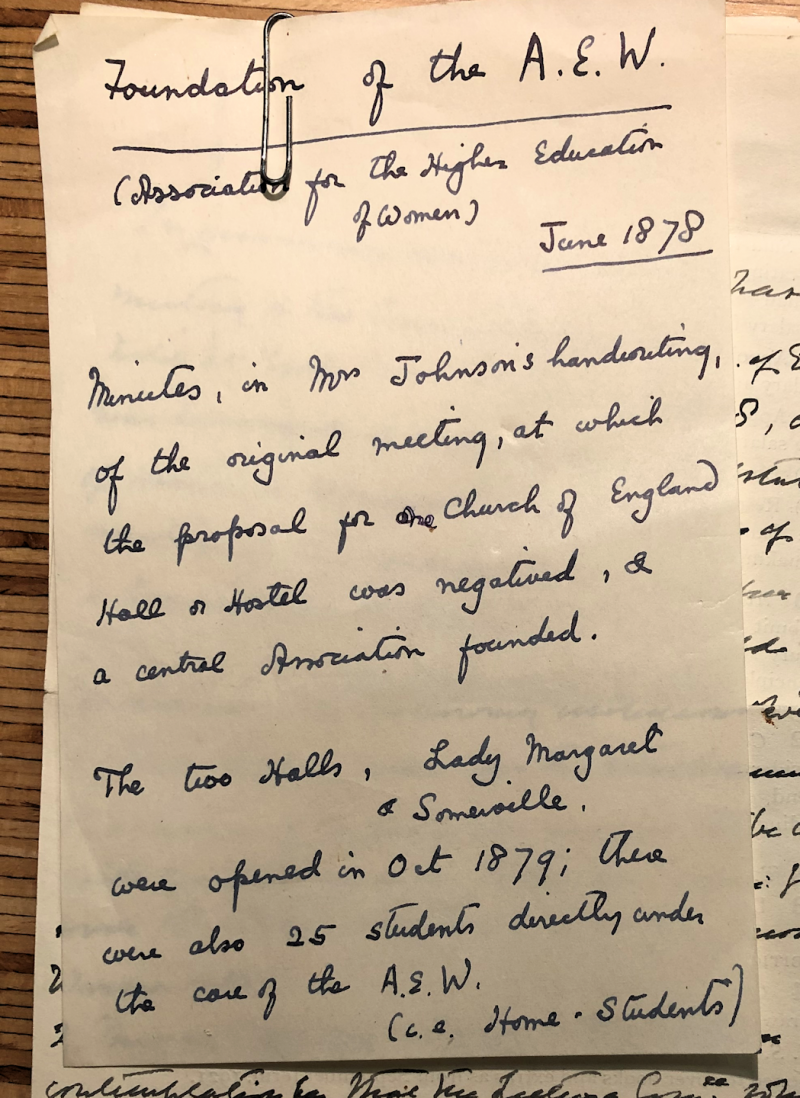 Foundation of the A.E.W.
(Association for the Higher Education
of Women)
June 1878
Minutes, in Mrs Johnson's handwriting,
of the original meeting, at which
the proposal for one Church of England
Hall or Hostel was negatived, &
a central Association founded.
The two Halls, Lady Margaret
& Somerville,
were opened in Oct 1879; there
were also 25 students directly under
the care of the A.E.W.
(i.e. Home-Students)